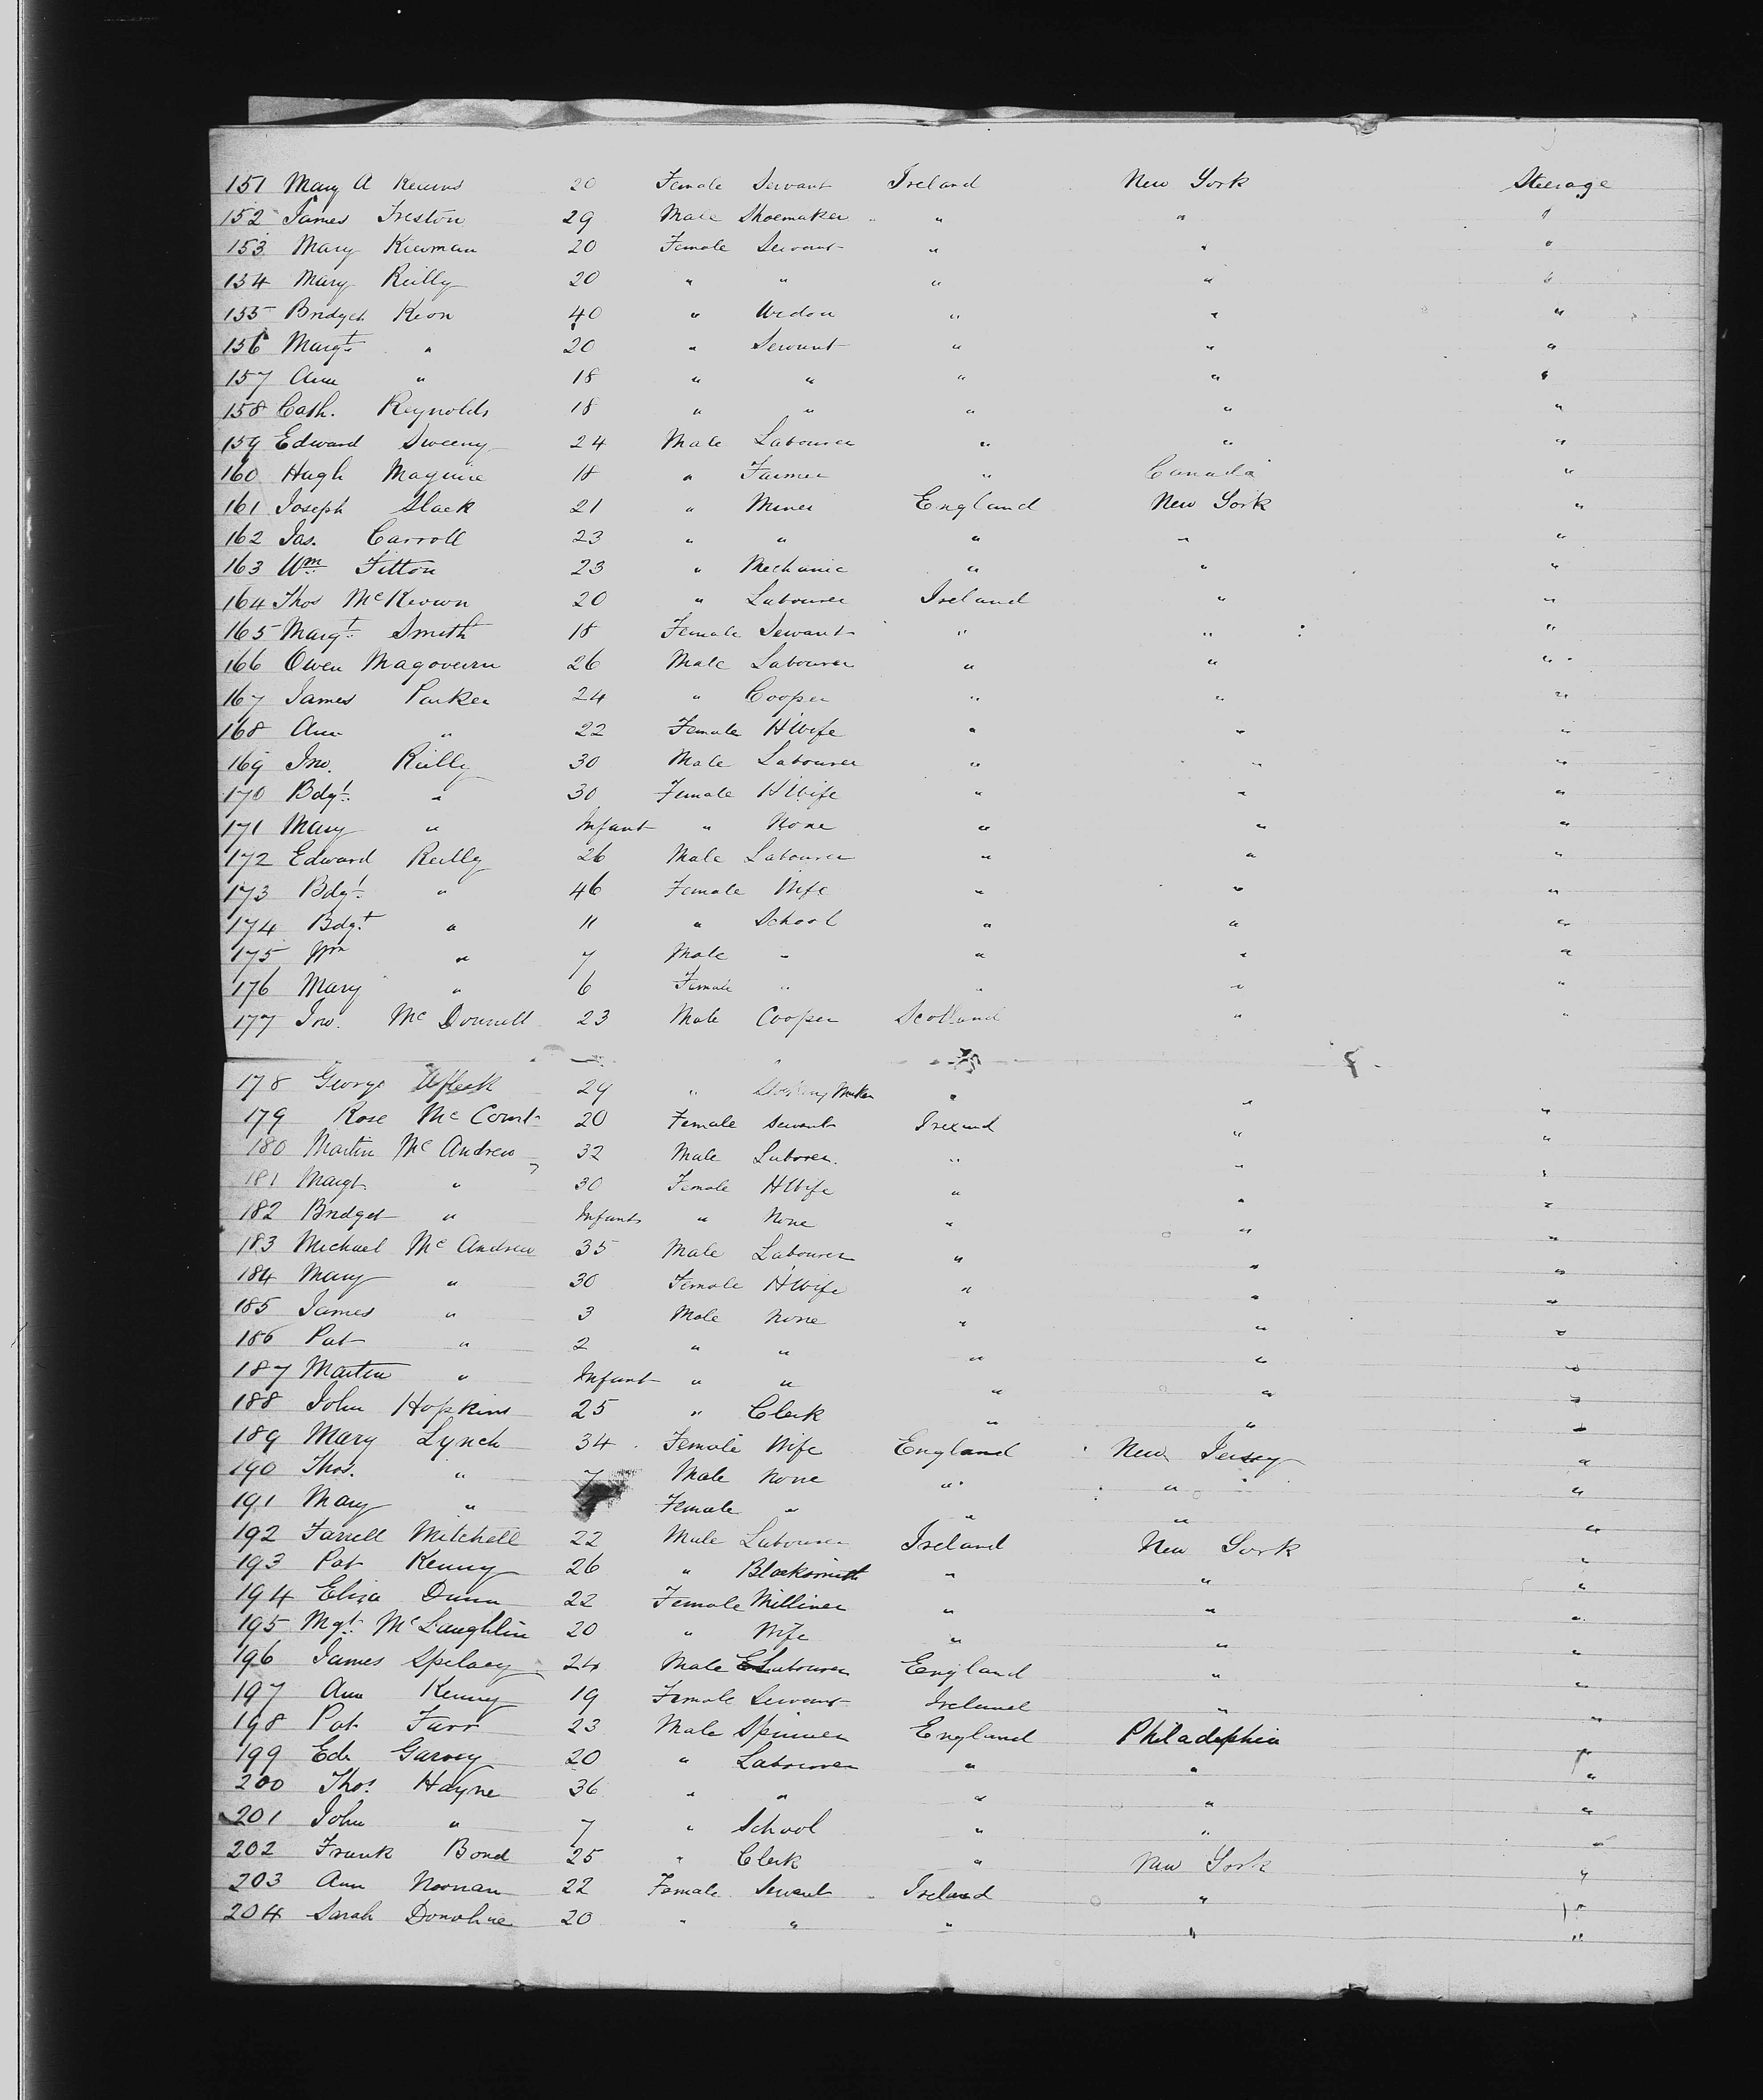 151 Mary A Kearns 20 Female Servant Ireland New York Steerage
152 James Freston 29 Male Shoemaker " " "
153 Mary Kiernan 20 Female Servant " " "
154 Mary Reilly 20 " " " " "
155 Bridget Keon 40 " Widow " " "
156 Margt " 20 " Servant " " "
157 Ann " 18 " " " " "
158 Cath. Reynolds 18 " " " " "
159 Edward Sweeny 24 Male Labourer " " "
160 Hugh Maguire 18 " Farmer " Canada "
161 Joseph Slack 21 " Miner England New York "
162 Jas. Carroll 23 " " " " "
163 Wm Fitton 23 " Mechanic " " "
164 Thos McKeown 20 " Labourer Ireland " "
165 Margt Smith 18 Female Servant " " "
166 Owen Magovern 26 Male Labourer " " "
167 James Parker 24 " Cooper " " "
168 Ann " 22 Female HWife " " "
169 Jno. Reilly 30 Male Labourer " " "
170 Bdgt " 30 Female HWife " " "
171 Mary " Infant " None " " "
172 Edward Reilly 26 Male Labourer " " "
173 Bdgt " 46 Female Wife " " "
174 Bdgt " 11 " School " " "
175 Wm " 7 Male " " " "
176 Mary " 6 Female " " " "
177 Jno. McDonnell 23 Male Cooper Scotland " "
178 George 29 " Maker " " "
179 Rose McCourt 20 Female Servant Ireland " "
180 Martin McAndrew 32 Male Laborer " " "
181 Margt. " 30 Female HWife " " "
182 Bridget " Infant " None " " "
183 Michael McAndrew 35 Male Labourer " " "
184 Mary " 30 Female HWife " " "
185 James " 3 Male None " " "
186 Pat " 2 " " " " "
187 Martin " Infant " " " " "
188 John Hopkins 25 " Clerk " " "
189 Mary Lynch 34 Female Wife England New Jersey "
190 Thos. " 7 Male None " " "
191 Mary " Female " " " "
192 Farrell Mitchell 22 Male Labourer Ireland New York "
193 Pat Kenny 26 " Blacksmith " " "
194 Eliza Dunn 22 Female Milliner " " "
195 Mgt. McLaughlin 20 " Wife " " "
196 James Spelacy 24 Male Labourer England " "
197 Ann Kenny 19 Female Servant Ireland " "
198 Pat Farr 23 Male Spinner England Philadephia "
199 Ed. Garvey 20 " Labourer " " "
200 Thos. Hayne 36 " " " " "
201 John " 7 " School " " "
202 Frank Bond 25 " Clerk " New York "
203 Ann Noonan 22 Female Servant Ireland " "
204 Sarah Donohue 20 " " " " "